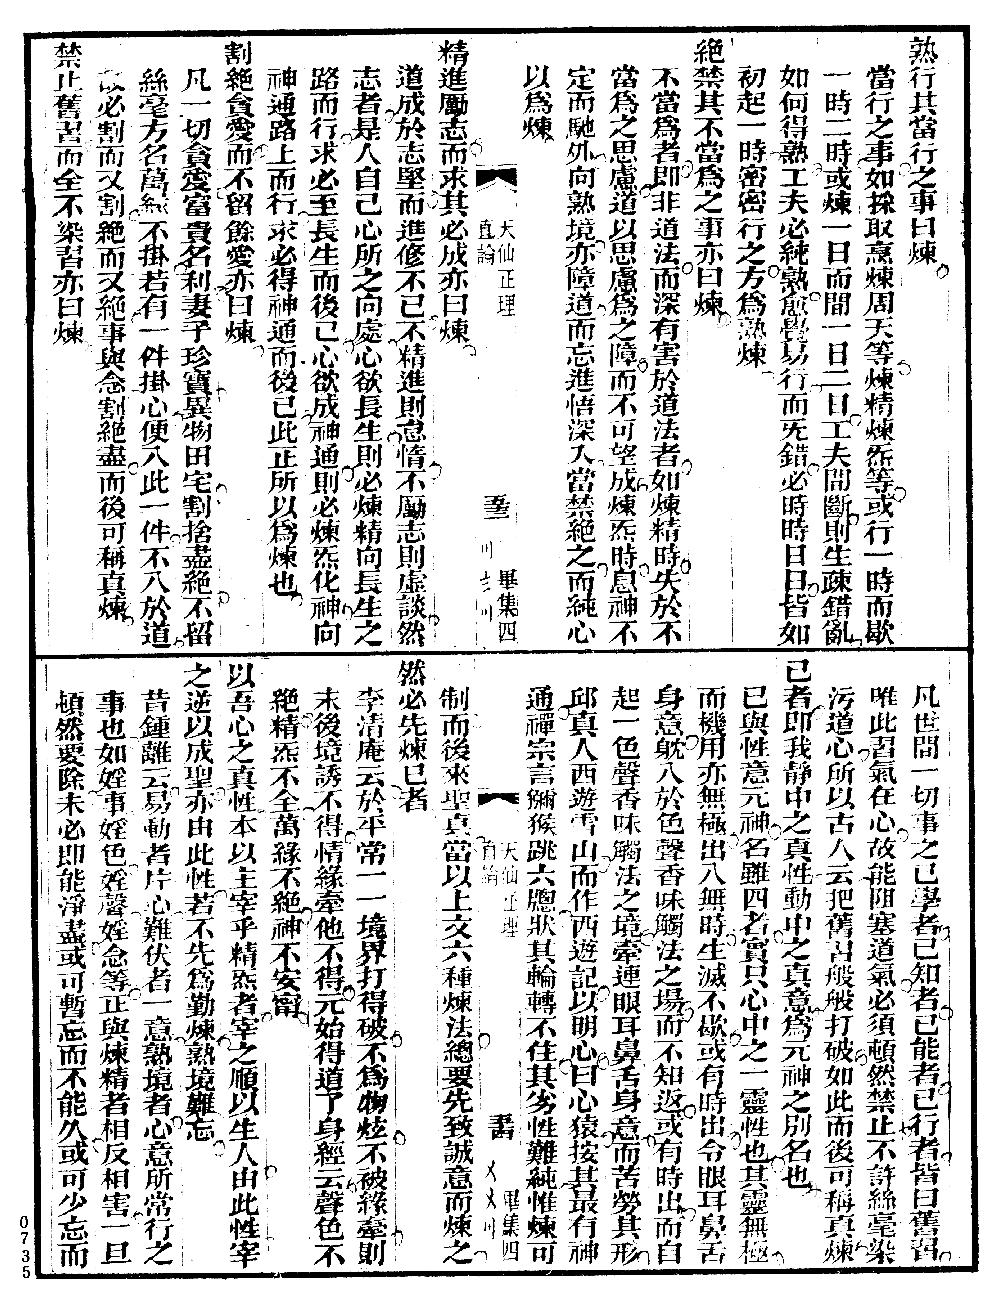 熟行其當行之事曰煉
當行之事如採取烹煉周天等煉精煉炁等或行一時而歇
一時二時或煉一日而間一日二日工夫間斷則生疎錯亂
如何得熟工夫必純熟愈覺易行而旡錯必時時日日皆如
初起一時密密行之方爲熟煉
絕禁其不當爲之事亦曰煉
不當爲者即非道法而深有害於道法者如煉精時失於不
當爲之思慮道以思慮爲之障而不可望成煉炁時息神不
定而馳外向熟境亦障道而忘進悟深入當禁絕之而純心
以爲煉
天仙正理
直論
畢集四
精進勵志而求其必成亦曰煉
道成於志堅而進修不已不精進則怠惰不勵志則虛談然
志者是人自己心所之向處心欲長生則必煉精向長生之
路而行求必至長生而後已心欲成神通則必煉炁化神向
神通路上而行求必得神通而後已此正所以爲煉也
割絕貪愛而不留餘愛亦曰煉
凡一切貪愛富貴名利妻子珍寶異物田宅割捨盡絕不留
絲毫方名萬緣不掛若有一件掛心便入此一件不入於道
故必割而又割絕而又絕事與念割絕盡而後可稱真煉
禁止舊習而全不染習亦曰煉
凡世間一切事之已學者已知者已能者已行者皆曰舊習
唯此習氣在心故能阻塞道氣必須頓然禁止不許絲毫染
污道心所以古人云把舊習般般打破如此而後可稱真煉
已者即我靜中之真性動中之真意爲元神之別名也
已與性意元神名雖四者實只心中之一靈性也其靈無極
而機用亦無極出入無時生滅不歇或有時出令眼耳鼻舌
身意躭入於色聲香味觸法之場而不知返或有時出而自
起一色聲香味觸法之境牽連眼耳鼻舌身意而苦勞其形
邱真人西遊雪山而作西遊記以明心曰心猿按其最有神
通禪宗言獼猴跳六牕狀其輪轉不住其劣性難純惟煉可
天仙正理
直論
畢集四
制而後來聖真當以上文六種煉法總要先致誠意而煉之
然必先煉已者
李清庵云於平常一一境界打得破不爲物炫不被緣牽則
末後境誘不得情緣牽他不得元始得道了身經云聲色不
絕精炁不全萬緣不絕神不安寧
以吾心之真性本以主宰乎精炁者宰之順以生人由此性宰
之逆以成聖亦由此性若不先爲勤煉熟境難忘
昔鍾離云易動者片心難伏者一意熟境者心意所常行之
事也如婬事婬色婬聲婬念等正與煉精者相反相害一旦
頓然要除未必即能淨盡或可暫忘而不能久或可少忘而
0735